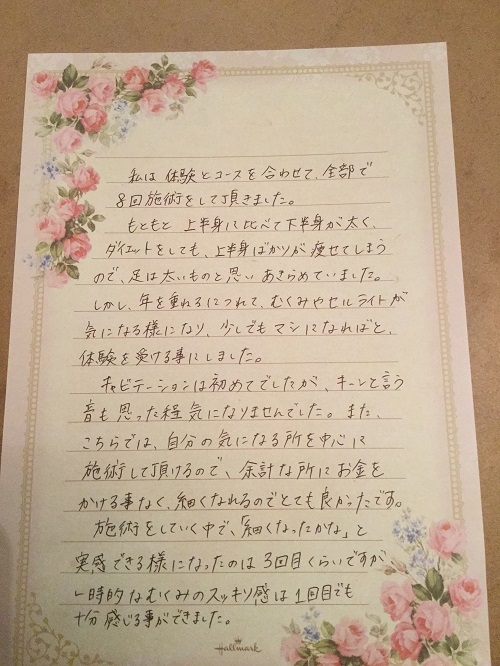 私は体験とコースを合わせて、全部で
8回施術をして頂きました。
もともと上半身に比べて下半身が太く、
ダイエットをしても、上半身ばかりが痩せてしまう
ので、足は太いものと思いあきらめていました。
しかし、年を重ねるにつれて、むくみやセルライトが
気になる様になり、少しでもマシになればと、
体験を受ける事にしました。
キャビテーションは初めてでしたが、キーンと言う
音も思った程気になりませんでした。また、
こちらでは、自分の気になる所を中心に
施術して頂けるので、余計な所にお金を
かける事なく、細くなれるのでとても良かったです。
施術をしていく中で、「細くなったかな」と
実感できる様になったのは3回目くらいですが
一時的なむくみのスッキリ感は1回目でも
十分感じる事ができました。
Hallmark